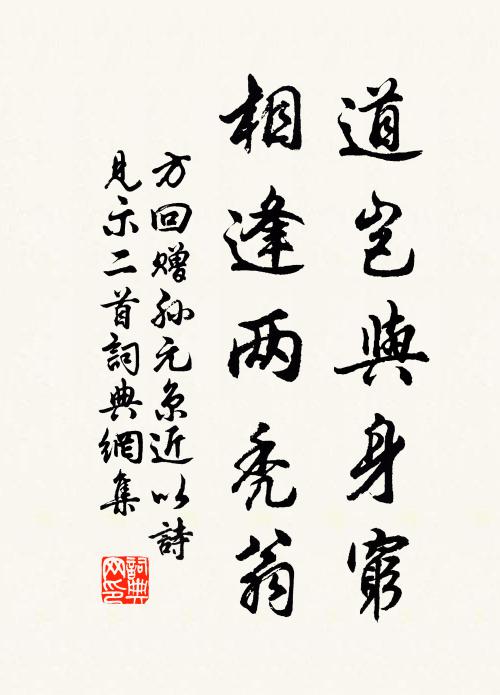 道岂與身窮
相逢两秃翁
方回赠孙元京近以詩
見示二首詞典網集
詞典網印